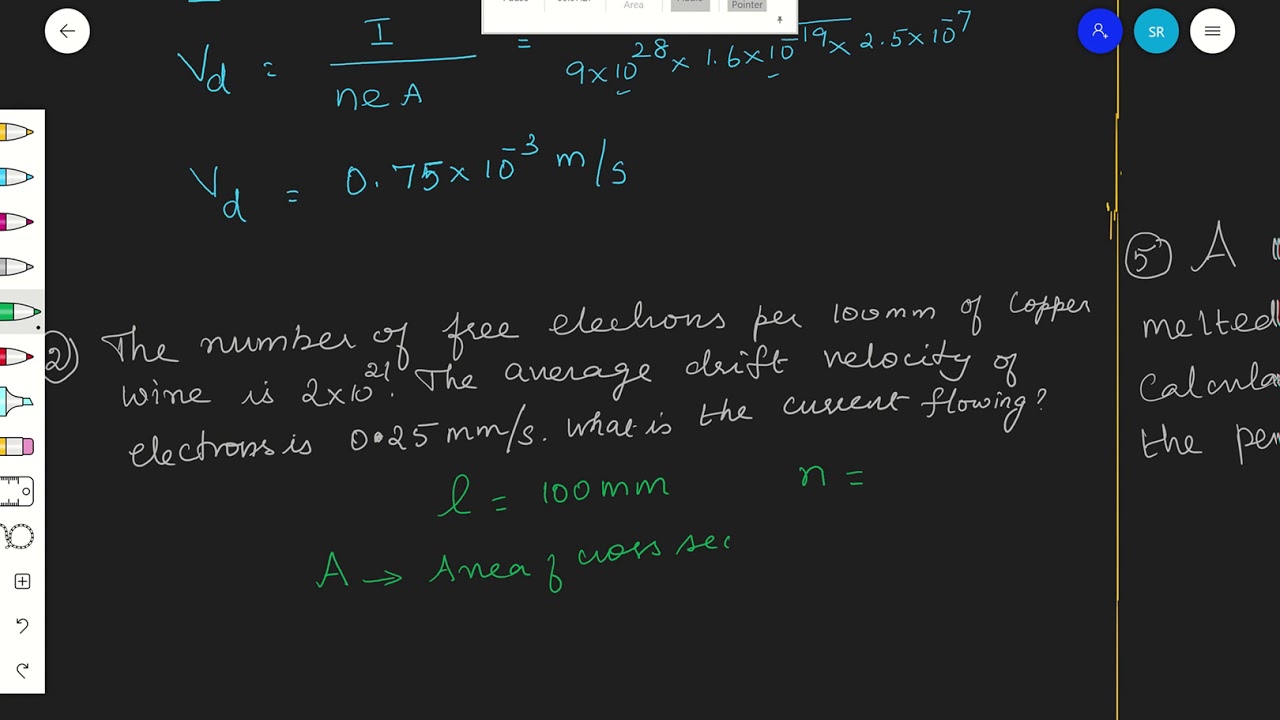 Area
Pointer
SR
I
Vd = ─── = 
neA
9×10^28 × 1.6×10^-19 × 2.5×10^-7
Vd = 0.75×10^-3 m/s
② The number of free electrons per 100mm of Copper
wire is 2×10^21. The average drift velocity of
electrons is 0.25 mm/s. What is the current flowing?
l = 100mm n =
A → Area of cross sec
⑤ A
melted
Calcula
the per